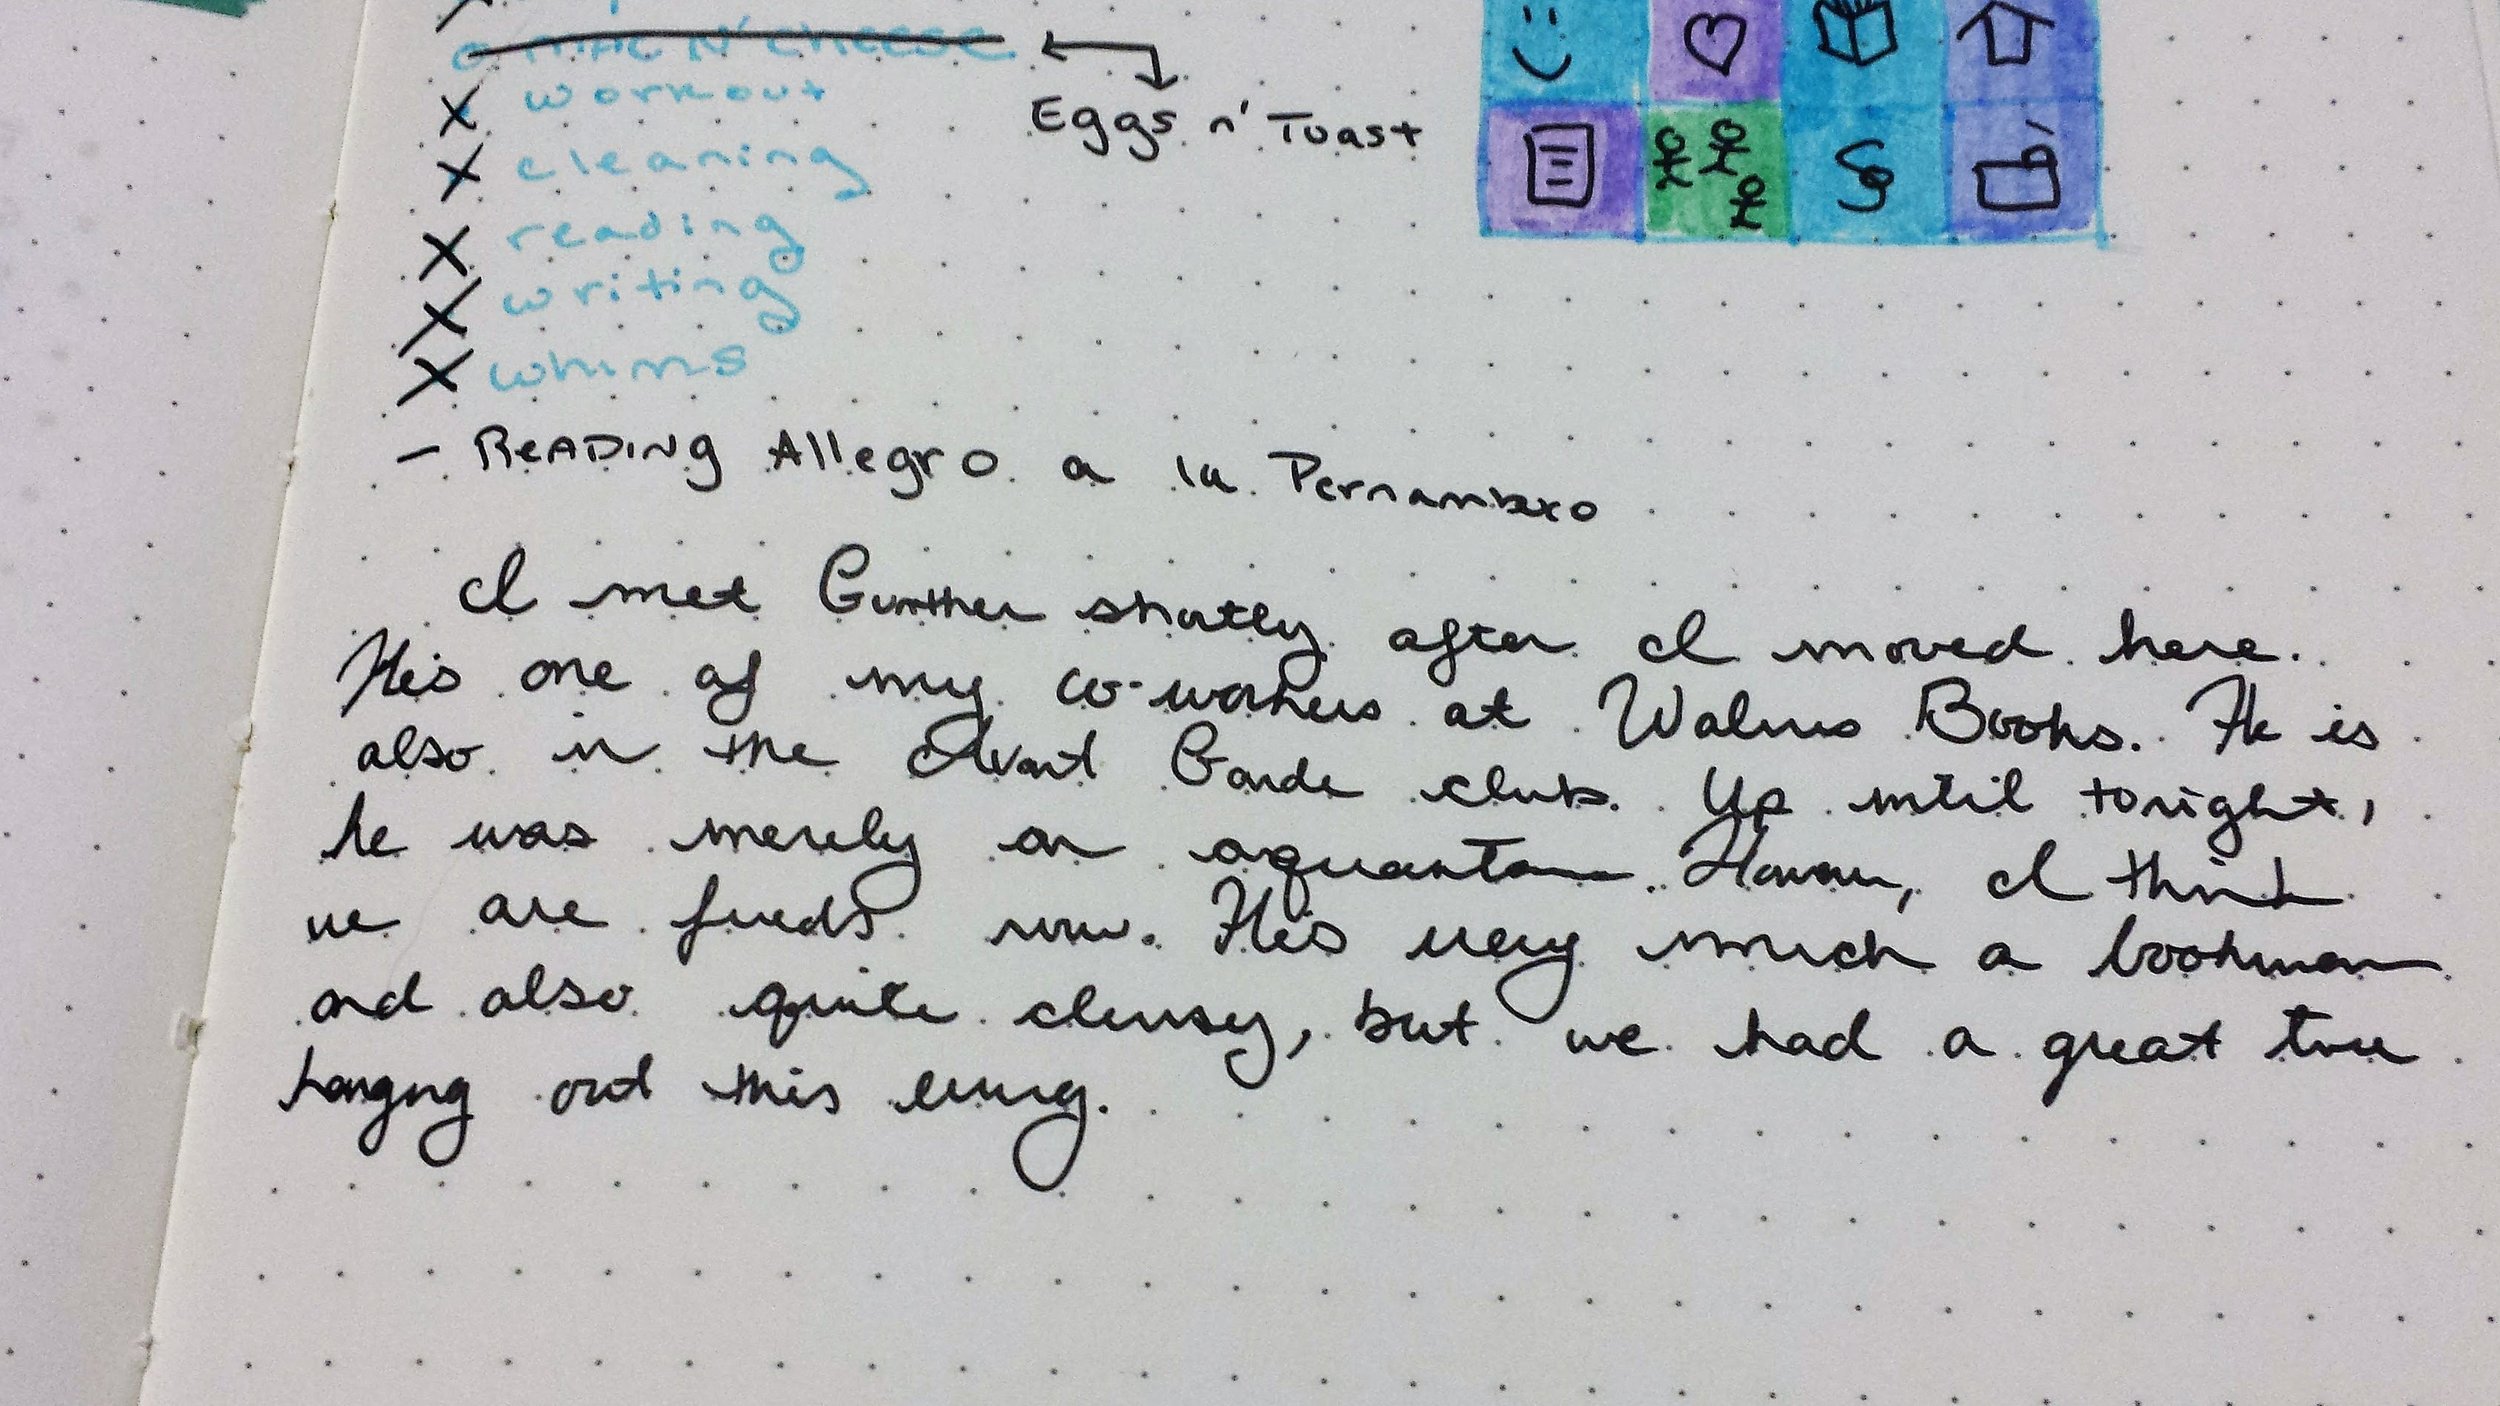 MAC N' CHEESE
Eggs n' Toast
X workout
X cleaning
X reading
X writing
X whims
- READING Allegro a la Pernambxo
I met Gunther shortly after I moved here.
He's one of my co-workers at Books. He is
also in the Avant Garde club. Up until tonight,
he was merely an However, I think
we are friends now. He's very much a bookman
and also quite clumsy, but we had a great time
hanging out this evening.